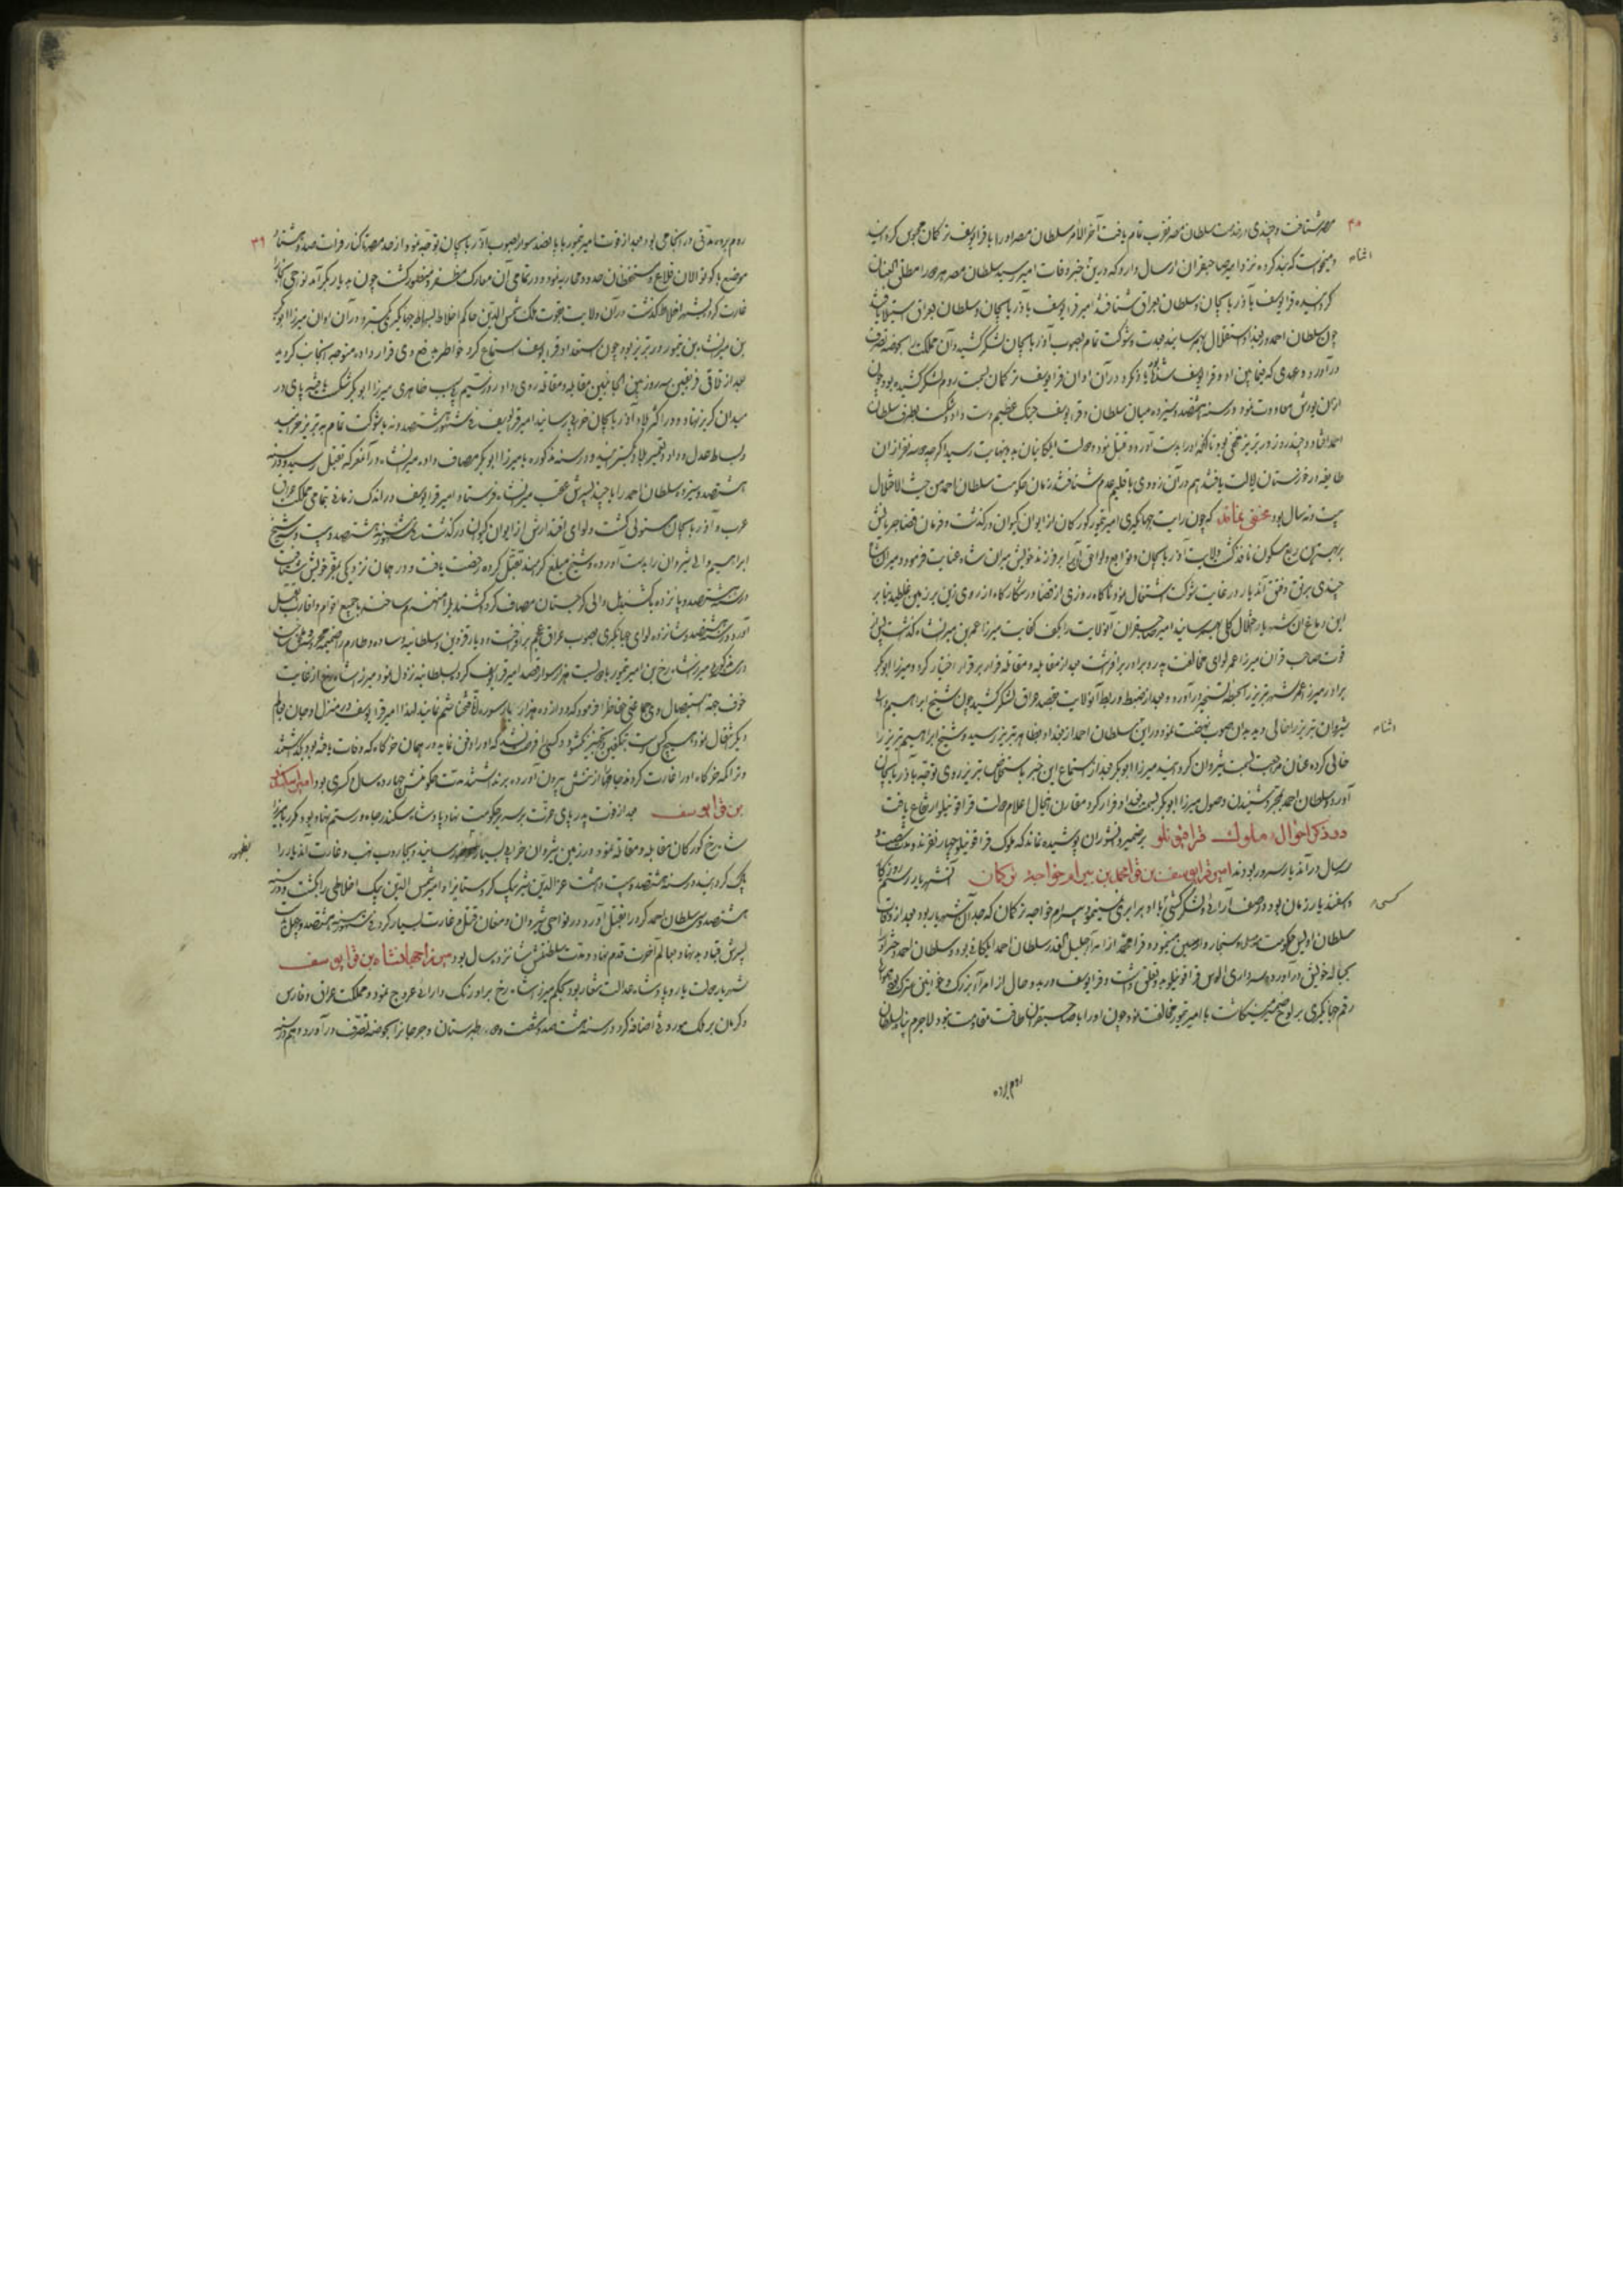 مصر شتافت و چندی در خدمت سلطان مصر تقرب تمام یافت آخر الامر سلطان مصر او را با قرایوسف ترکمان محبوس گردانید
و میخواست که بند کرده نزد امیر صاحبقران ارسال دارد که درین خبر وفات امیر رسید سلطان مصر هر دو را مطلق العنان
گردانیده قرایوسف بآذربایجان و سلطان بعراق شتافتند امیر قرایوسف بآذربایجان و سلطان بعراق استیلا یافتند
چون سلطان احمد در بغداد استقلال بهم رسانید بعدت و شوکت تمام بصوب آذربایجان لشکر کشید و آن مملکت بحوضه تصرف
درآورد و عهدی که فیمابین او و قرایوسف شده بود یاد نکرد در آن اوان قرایوسف ترکمان بسمت روم لشکر کشیده بود چون
ازان یورش معاودت نمود در سنه هشتصد و سیزده میان سلطان و قرایوسف جنک عظیم دست داد و شکست بطرف سلطان
احمد افتاد و چند روز در تبریز مخفی بود تا آنکه او را بدست آورده بقتل نمود و دولت ایلکانیان بدو نهایت رسید اگرچه دو سه نفر از ان
طایفه در خوزستان ایالت یافتند هم در آن زودی باقلیم عدم شتافتند زمان حکومت سلطان احمد من حیث الاختلال
بیست و نه سال بود مخفی نماند که چون رایت جهانگیری امیر تیمور گورکان از ایوان کیوان درگذشت و فرمان قضا جریانش
بر بهترین ربع مسکون نافذ گشت ولایت آذربایجان و توابع و لواحق آنرا بر فرزند خویش میران شاه عنایت فرمود و میران شاه
چندی برتق و فتق آن دیار در غایت شوکت اشتغال نمود تا گاه روزی از قضا در شکارگاه از روی زین بر زمین غلطید بنابر
این دماغ آن شهریار اختلال کلی بهم رسانید امیر صاحبقران آن ولایت را بکف کفایت میرزا عمر بن میرانشاه گذاشت پس از
فوت صاحبقران میرزا عمر لوای مخالفت پدر و برادر برافراشت بعد از مقابله و مقاتله فرار بر قرار اختیار کرد و میرزا ابوبکر
برادر میرزا عمر شهر تبریز را بحیطه تسخیر درآورده و بعد از ضبط و ربط آن ولایت بقصد عراق لشکر کشید چون شیخ ابراهیم والی
شیروان تبریز را خالی دید بدان صوب نهضت نمود و در این سلطان احمد از بغداد بظاهر تبریز رسید و شیخ ابراهیم تبریز را
خالی کرده عنان مراجعت بسمت شیروان گردانید میرزا ابوبکر بعد از استماع این خبر باستخلاص تبریز روی توجه بآذربایجان
آورد و سلطان احمد بمجرد شنیدن وصول میرزا ابوبکر بسمت بغداد فرار کرد مقارن اینحال اعلام دولت قراقوینلو ارتفاع یافت
در ذکر احوال ملوک قراقوینلو بر ضمیر دانشوران پوشیده نماند که ملوک قراقوینلو چهار نفرند و مدت شصت و
سال در آن دیار سرور بودند امیر قرایوسف بن قرا محمد بن بیرام خواجه ترکمان آن شهریار رستم روزگار
و اسفندیار زمان بود در صف آرائی و لشکرکشی با او برابری نمینمود بیرام خواجه ترکمان که جد آن شهریار بود بعد از وفات
سلطان اویس بحکومت موصل و سنجار و ارجیش میبود و قرا محمد از امراء جلیل القدر سلطان احمد ایلکانی بود و سلطان احمد دختر او را
بحباله خویش درآورده و سرداری الوس قراقوینلو بدو تعلق داشت و قرایوسف در بدو حال از امراء بزرگ و خوانین سترک بود همواره
رقم جهانگیری بر لوح ضمیر مینگاشت با امیر تیمور مخالفت نمود چون او را با صاحبقران طاقت مقاومت نبود لاجرم پناه بسلطان
روم برده
روم برده مدتی در آنجا می بود بعد از فوت امیر تیمور با پانصد سوار بصوب آذربایجان توجه نمود و از حد مصر تا کنار فرات صد و هشتاد
موضع با کوتوالان قلاع و مستحفظان حدود محاربه نمود و در تمامی آن معارک مظفر و منصور گشت چون به دیاربکر آمد نواحی آنرا
غارت کرد و بسمت اخلاط گذشت در آن ولایت بقوت ملک شمس الدین حاکم اخلاط بساط جهانگیری بگسترد و در آن اوان میرزا ابوبکر
بن میرانشاه بن تیمور در تبریز بود چون استعداد قرایوسف استماع کرد خواطر بدفع وی قرار داده متوجه آنجانب گردید
بعد از تلاقی فریقین سه روز بین الجانبین مقابله و مقاتله روی داد روز سیم بی سبب ظاهری میرزا ابوبکر شکست یافته پای در
میدان گریز نهاد و در اکثر بلاد آذربایجان خرابی رسانید امیر قرایوسف در شهور هشتصد و نه با شوکت تمام به تبریز خرامید
و بساط عدل و داد و تعمیر بلاد گسترانید و در سنه مذکوره با میرزا ابوبکر مصاف داده میرانشاه در آن معرکه بقتل رسید و در سنه
هشتصد و سیزده سلطان احمد را با چند پسرش عقب میرانشاه فرستاد امیر قرایوسف در اندک زمانی بتمامی مملکت عراق
عرب و آذربایجان مستولی گشت و لوای اقتدارش از ایوان کیوان درگذشت در سنه هشتصد و بیست و شیخ
ابراهیم والی شیروان را بدست آورده و شیخ مبلغ گرانمند تقبل کرده رخصت یافت و در همان نزدیکی بمقر خویش شتافت
در سنه هشتصد و پانزده با کستندیل والی گرجستان مصاف کرد گشتندیل را منهزم ساخته با جمیع اقوام و اقارب بقتل
آورد و در سنه هشتصد و شانزده لوای جهانگیری بصوب عراق عجم برافراخت و دیار قزوین و سلطانیه و ساوه و طارم را ضمیمه محروسه خویش ساخت
میرزا شاهرخ بن امیر تیمور با دویست هزار سوار قصد امیر قرایوسف کرد بسلطانیه نزول نمود میرزا شاهرخ از غایت
خوف جهة استیصال وی حافظ خاطرا فرمود که دوازده هزار بار سوره انا فتحنا ختم نمایند لهذا امیر قرایوسف در منزل اوجان بعالم
دیگر انتقال نمود هیچ کس دست بتکفین و تجهیز نگشود و کسی را فرصت نشد که او را دفن نماید در همان خرگاه که وفات یافته بود بگذاشتند
و تراکمه خرگاه او را غارت کردند جامها از تنش بیرون آورده برداشتند مدت حکومتش چهارده سال و کسری بود امیر اسکندر
بن قرایوسف بعد از فوت پدر پای عزت بر سریر حکومت نهاد پادشاه سکندر جاه و رستم نهاد بود مکرر با میرزا
شاهرخ گورکان مقابله و مقاتله نمود و در زمین شیروان خرابی بسیار رسانید و بجاروب نهب و غارت آن دیار را
پاک گردانید در سنه هشتصد و بیست و هشت عزالدین شیر بیک کردستانی را و امیر شمس الدین بیک اخلاطی را بکشت و در سنه
هشتصد و سی سلطان احمد کرد را بقتل آورد و در نواحی شیروان و مغان قتل و غارت بسیار کرد در سنه هشتصد و چهل
پسرش قباد بدنهاد بعالم آخرت قدم نهاد و مدت سلطنتش شانزده سال بود میرزا جهانشاه بن قرایوسف
شهریار دولت یار و پادشاه عدالت شعار بود بحکم میرزا شاهرخ بر اورنگ دارائی عروج نمود و مملکت عراق و فارس
و کرمان بر ملک موروثی اضافه کرد در سنه هشتصد و شصت و طبرستان و جرجان را بحوضه تصرف درآورد و هم در سنه